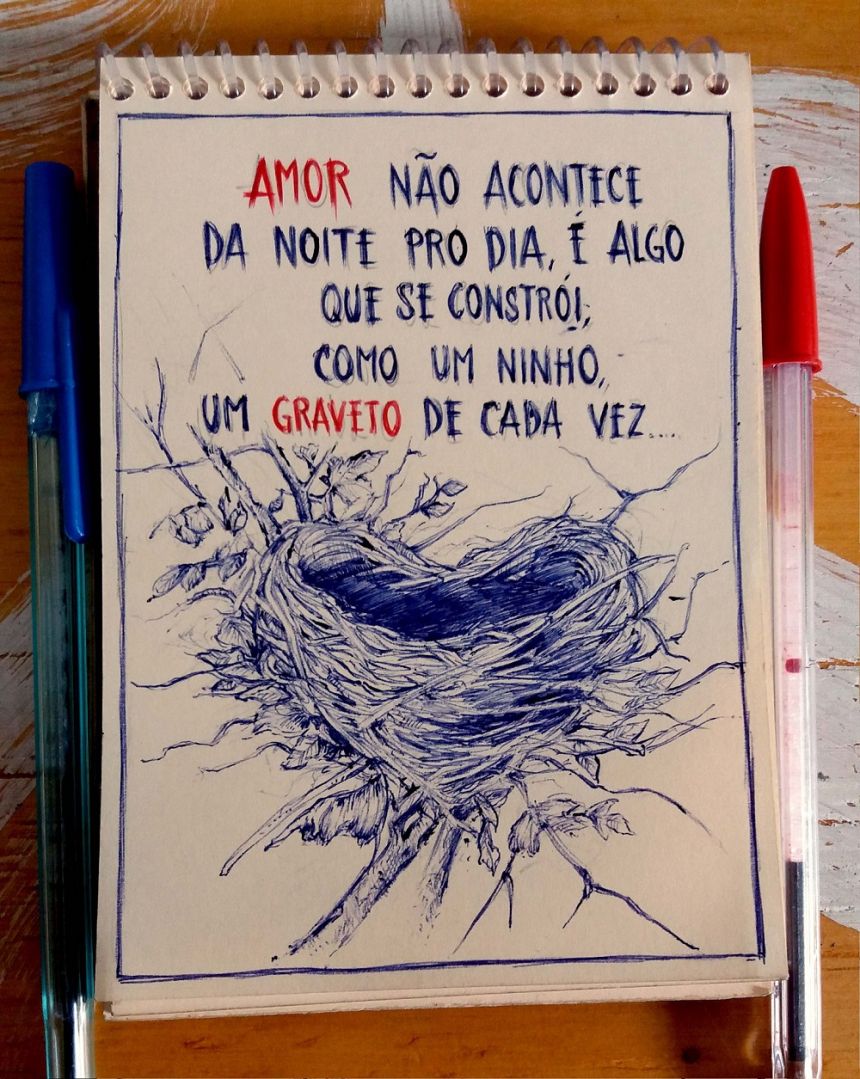 AMOR NÃO ACONTECE
DA NOITE PRO DIA, É ALGO
QUE SE CONSTRÓI;
COMO UM NINHO,
UM GRAVETO DE CADA VEZ...